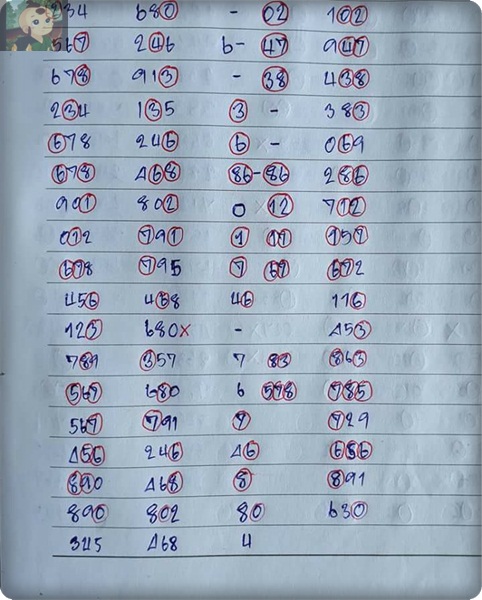 234 680 - 02 102
567 246 6- 47 947
678 913 - 38 438
234 135 3 - 383
678 246 6 × - 069
678 468 86-86 286
901 802 0 × 12 712
012 791 1 11 157
678 795 7 67 672
456 468 46 116
123 680× - 453
789 357 7 × 83 863
567 680 6 578 785
567 791 7 729
456 246 46 686
890 468 8 891
890 802 80 630
345 468 4